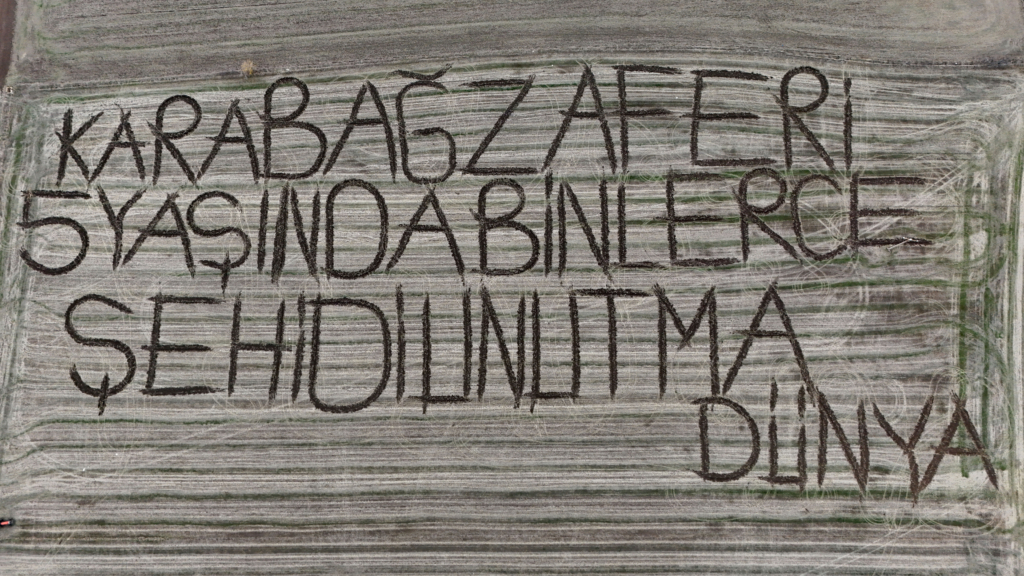 KARABAĞ ZAFERİ
5 YAŞINDA BİNLERCE
ŞEHİDİ UNUTMA
DÜNYA